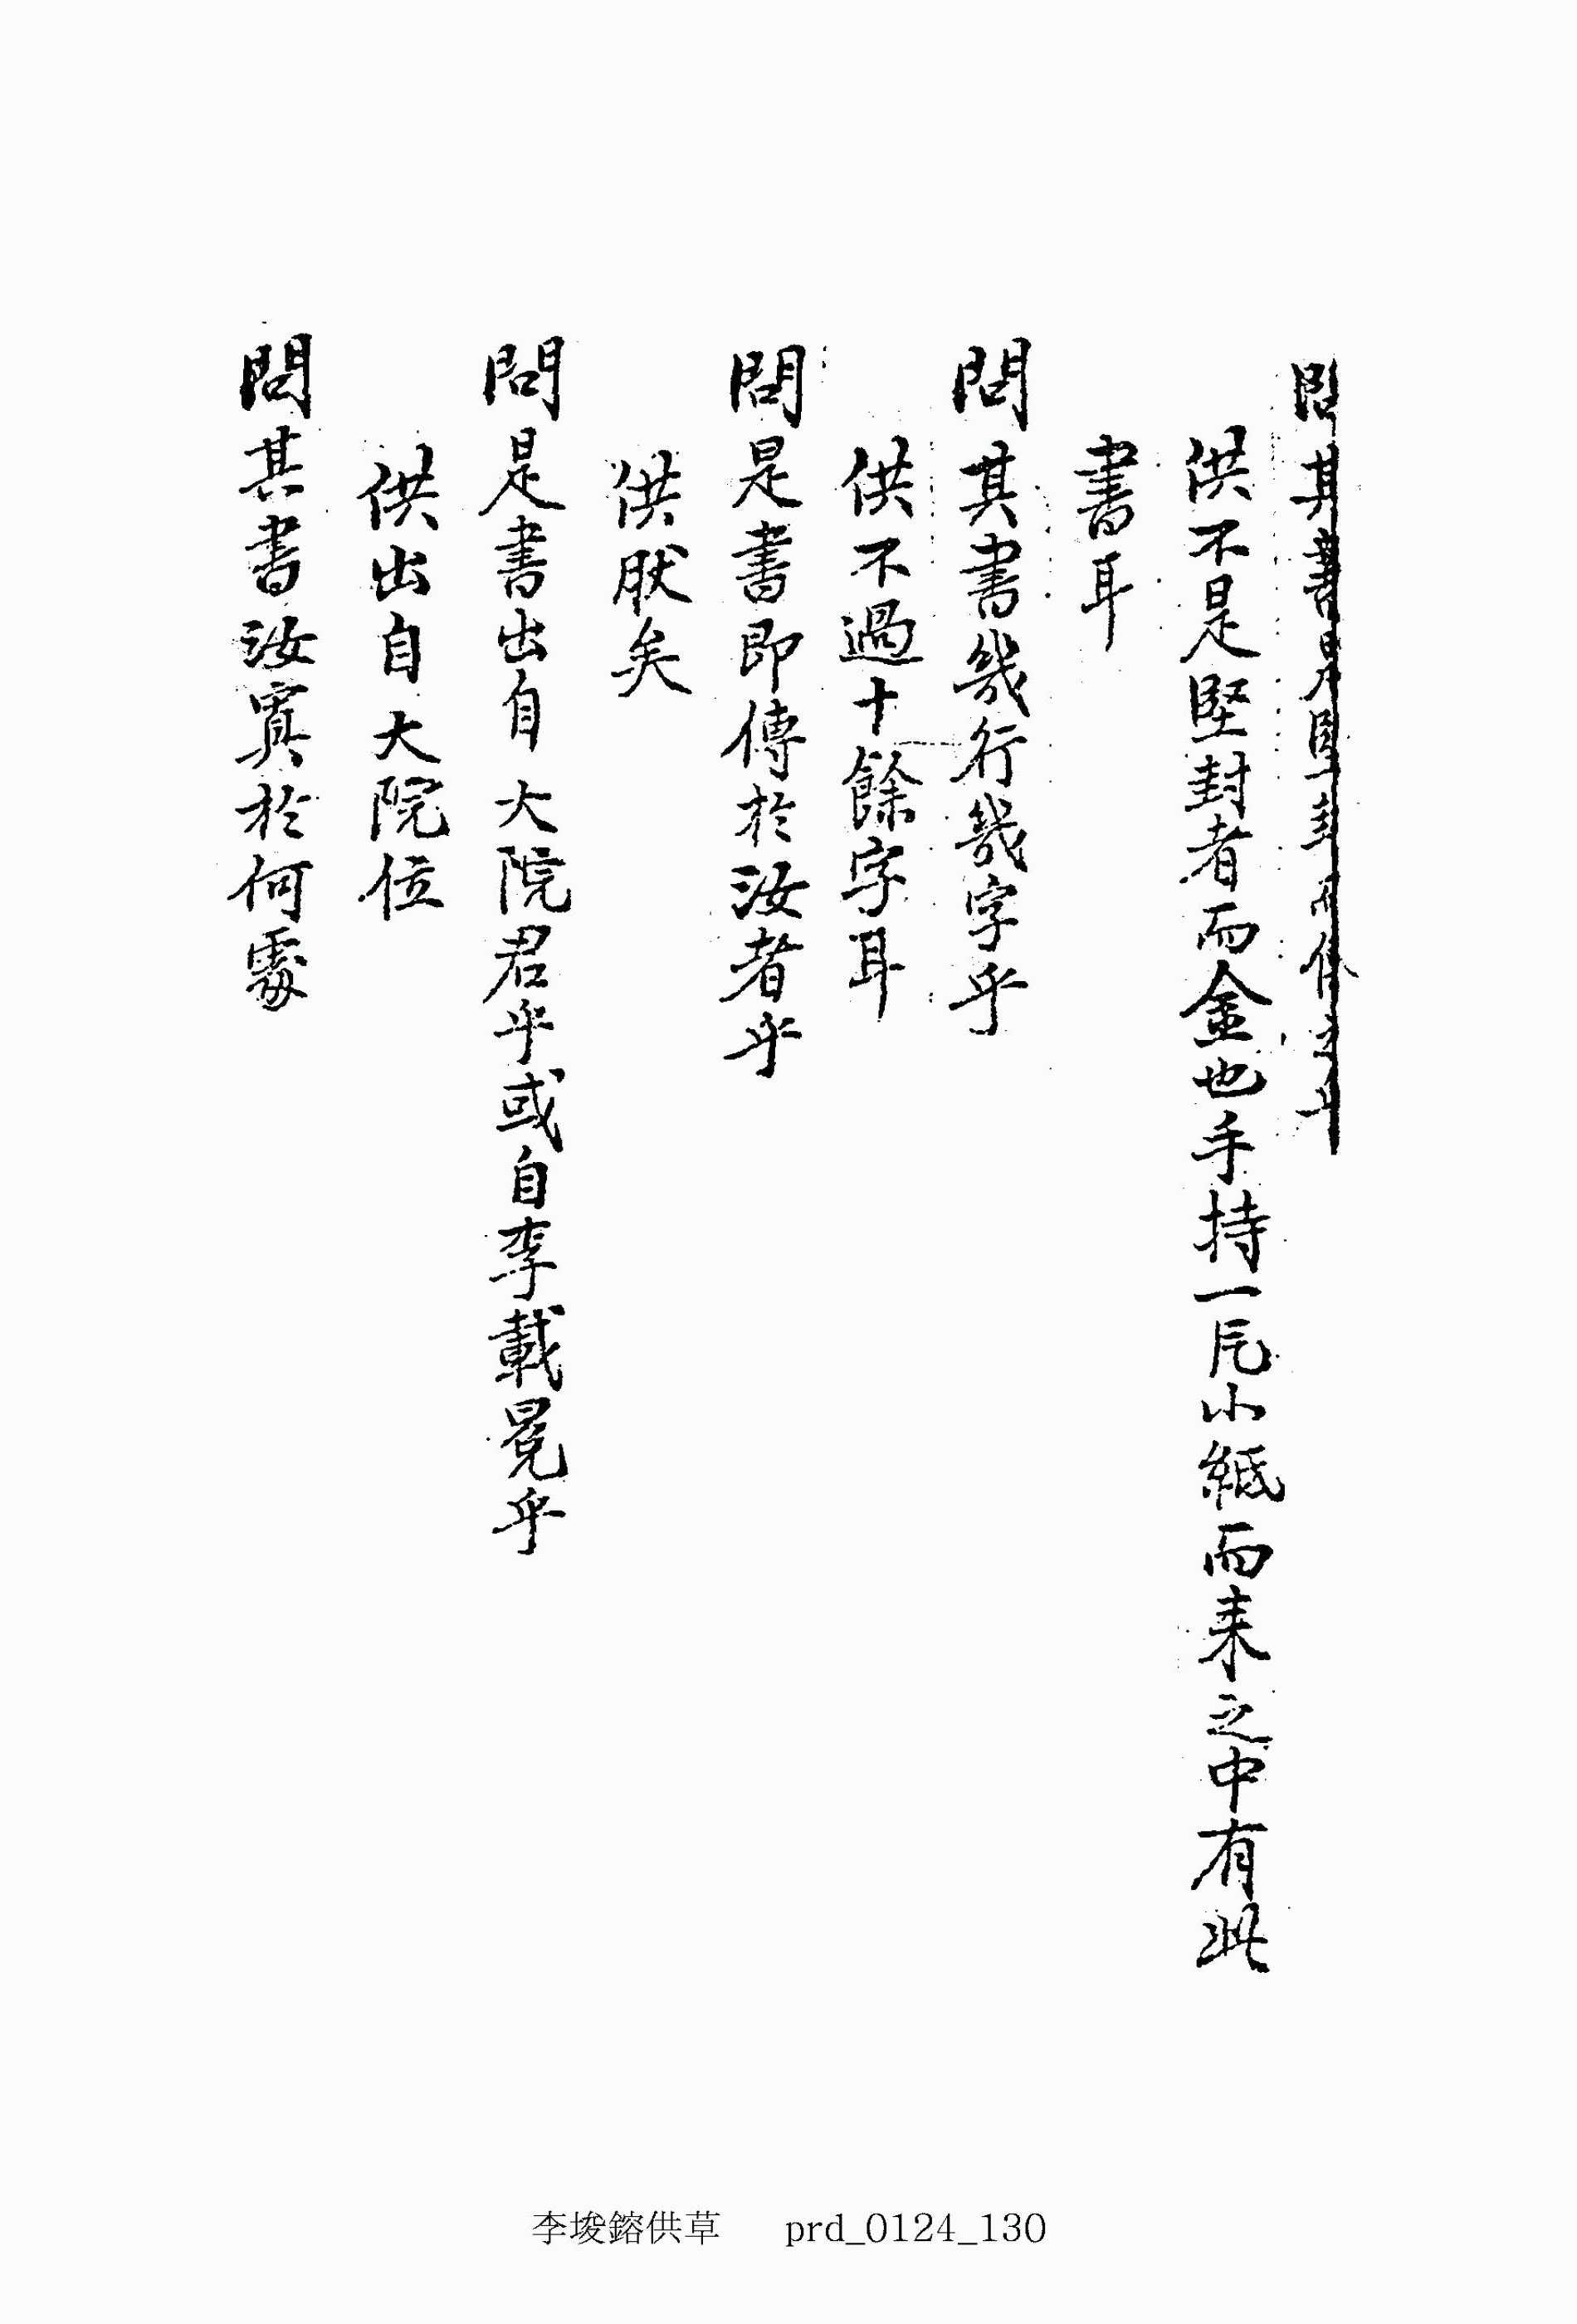 問其書是堅封而傳之乎
供不是堅封者而金也手持一片小紙而来之中有此
書耳
問其書幾行幾字乎
供不過十餘字耳
問是書即傳於汝者乎
供肰矣
問是書出自大院君乎或自李載冕乎
供出自大院位
問其書汝寘於何處
李埈鎔供草 prd_0124_130